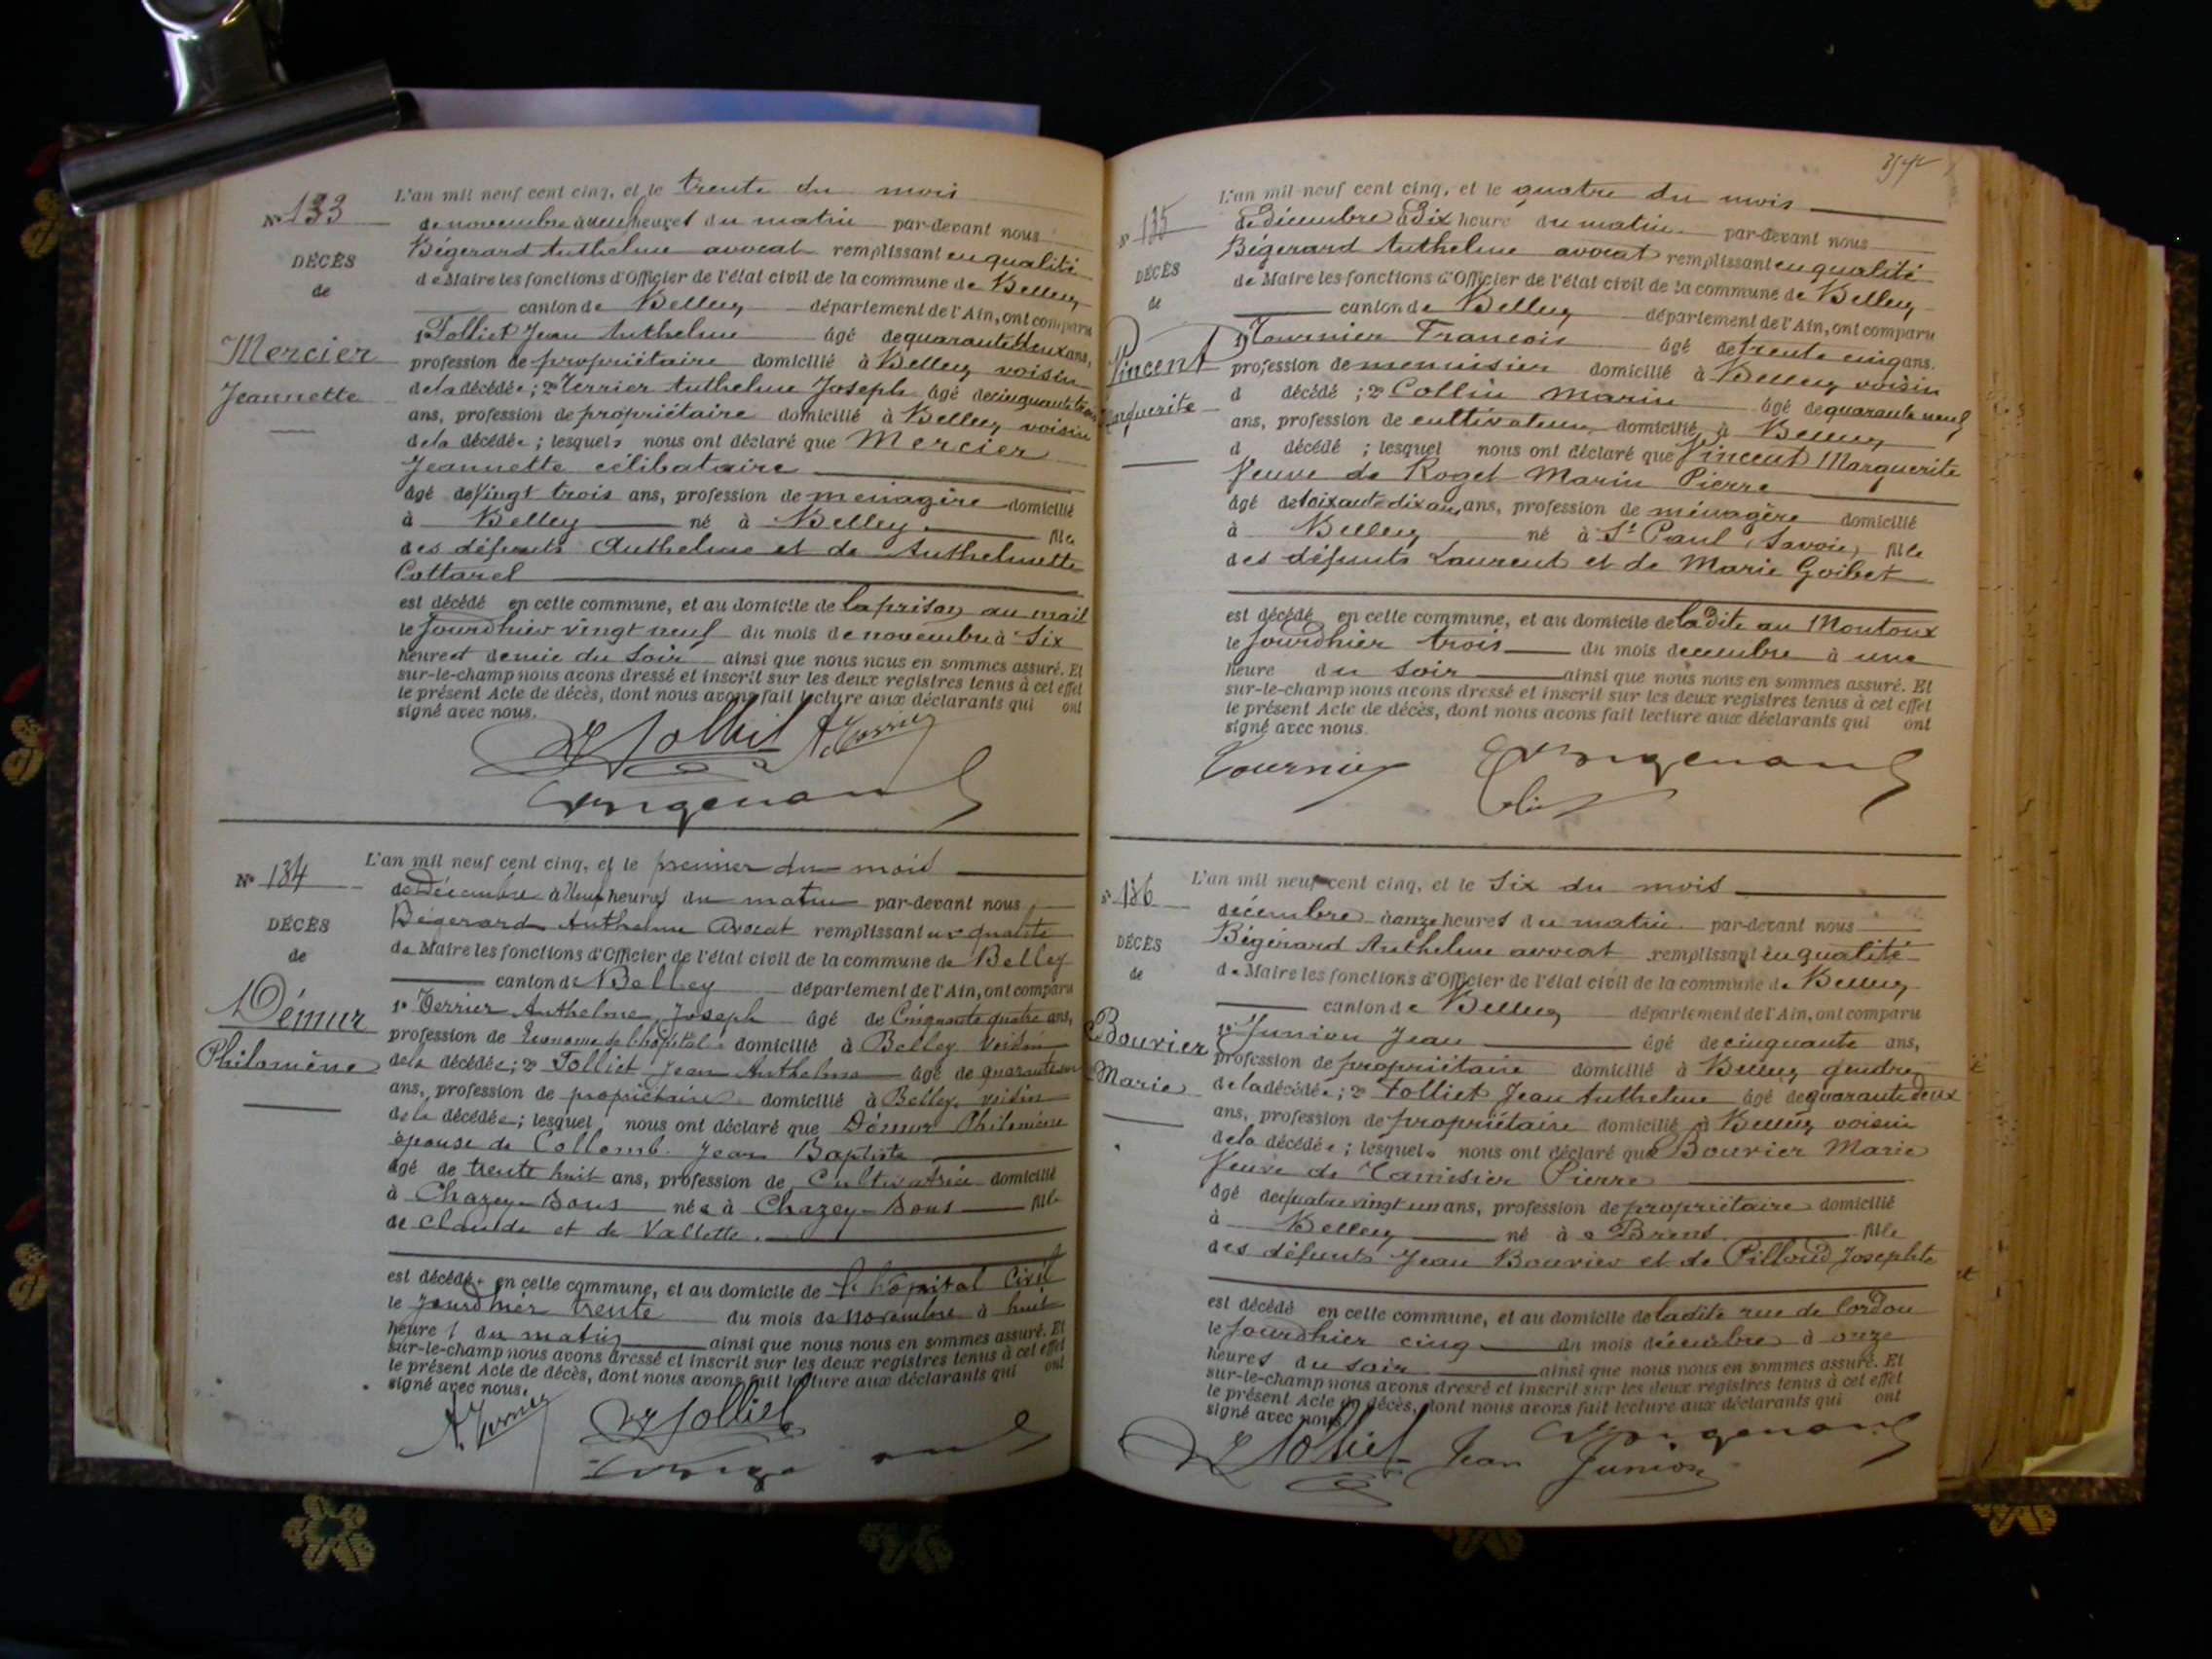 N° 133
DÉCÈS
de
Mercier
Jeannette
L'an mil neuf cent cinq, et le trente du mois
de novembre à neuf heures du matin par-devant nous
Bégerard Anthelme avocat remplissant en qualité
de Maire les fonctions d'Officier de l'état civil de la commune de Belley
canton de Belley département de l'Ain, ont comparu
1° Folliet Jean Anthelme âgé de quarante deux ans,
profession de propriétaire domicilié à Belley voisin
de la décédée ; 2° Terrier Anthelme Joseph âgé de cinquante trois
ans, profession de propriétaire domicilié à Belley voisin
de la décédée ; lesquels nous ont déclaré que Mercier
Jeannette célibataire
âgé de vingt trois ans, profession de ménagère domicilié
à Belley né à Belley fille
des défunts Anthelme et de Anthelmette
Cottarel
est décédé en cette commune, et au domicile de la prison au mail
le jourdhier vingt neuf du mois de novembre à six
heure et demie du soir ainsi que nous nous en sommes assuré. Et
sur-le-champ nous avons dressé et inscrit sur les deux registres tenus à cet effet
le présent Acte de décès, dont nous avons fait lecture aux déclarants qui ont
signé avec nous.
Folliet A. Terrier
N° 134
DÉCÈS
de
Démur
Philomène
L'an mil neuf cent cinq, et le premier du mois
de Décembre à neuf heures du matin par-devant nous
Bégerard Anthelme avocat remplissant en qualité
de Maire les fonctions d'Officier de l'état civil de la commune de Belley
canton de Belley département de l'Ain, ont comparu
1° Terrier Anthelme Joseph âgé de Cinquante quatre ans,
profession de Econome de l'hôpital domicilié à Belley voisin
de la décédée ; 2° Folliet Jean Anthelme âgé de quarante un
ans, profession de propriétaire domicilié à Belley voisin
de la décédée ; lesquel nous ont déclaré que Démur Philomène
épouse de Collomb Jean Baptiste
âgé de trente huit ans, profession de Cultivatrice domicilié
à Chazey-Bons née à Chazey-Bons fille
de Claude et de Vallette.
est décédée en cette commune, et au domicile de l'hôpital Civil
le jourdhier trente du mois de novembre à huit
heures du matin ainsi que nous nous en sommes assuré. Et
sur-le-champ nous avons dressé et inscrit sur les deux registres tenus à cet effet
le présent Acte de décès, dont nous avons fait lecture aux déclarants qui ont
signé avec nous.
A. Terrier Folliet
N° 135
DÉCÈS
de
Vincent
Marguerite
L'an mil neuf cent cinq, et le quatre du mois
de Décembre à Dix heure du matin par-devant nous
Bégerard Anthelme avocat remplissant en qualité
de Maire les fonctions d'Officier de l'état civil de la commune de Belley
canton de Belley département de l'Ain, ont comparu
1° Tournier Francois âgé de trente cinq ans,
profession de menuisier domicilié à Belley voisin
d décédé ; 2° Collin Marin âgé de quarante neuf
ans, profession de cultivateur domicilié à Belley
d décédé ; lesquel nous ont déclaré que Vincent Marguerite
Veuve de Roget Marin Pierre
âgé de soixante dix ans ans, profession de ménagère domicilié
à Belley né à St Paul (Savoie) fille
des défunts Laurent et de Marie Goibet
est décédé en cette commune, et au domicile de ladite au Montoux
le jourdhier trois du mois decembre à une
heure du soir ainsi que nous nous en sommes assuré. Et
sur-le-champ nous avons dressé et inscrit sur les deux registres tenus à cet effet
le présent Acte de décès, dont nous avons fait lecture aux déclarants qui ont
signé avec nous.
Tournier
N° 136
DÉCÈS
de
Bouvier
Marie
L'an mil neuf cent cinq, et le six du mois
décembre à onze heures du matin par-devant nous
Bégérard Anthelme avocat remplissant en qualité
de Maire les fonctions d'Officier de l'état civil de la commune de Belley
canton de Belley département de l'Ain, ont comparu
1° Junion Jean âgé de cinquante ans,
profession de propriétaire domicilié à Belley gendre
de la décédée ; 2° Folliet Jean Anthelme âgé de quarante deux
ans, profession de propriétaire domicilié à Belley voisin
de la décédée ; lesquels nous ont déclaré que Bouvier Marie
Veuve de Tamisier Pierre
âgé de quatre vingt un ans, profession de propriétaire domicilié
à Belley né à Brens fille
des défunts Jean Bouvier et de Pilloud Josephte
est décédé en cette commune, et au domicile de ladite rue de Cordon
le jourdhier cinq du mois décembre à onze
heures du soir ainsi que nous nous en sommes assuré. Et
sur-le-champ nous avons dressé et inscrit sur les deux registres tenus à cet effet
le présent Acte de décès, dont nous avons fait lecture aux déclarants qui ont
signé avec nous.
Folliet Jean Junion